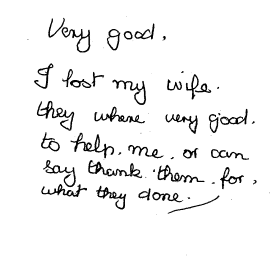 Very good.
I lost my wife.
they where very good.
to help. me. or can
say thank them. for.
what they done.